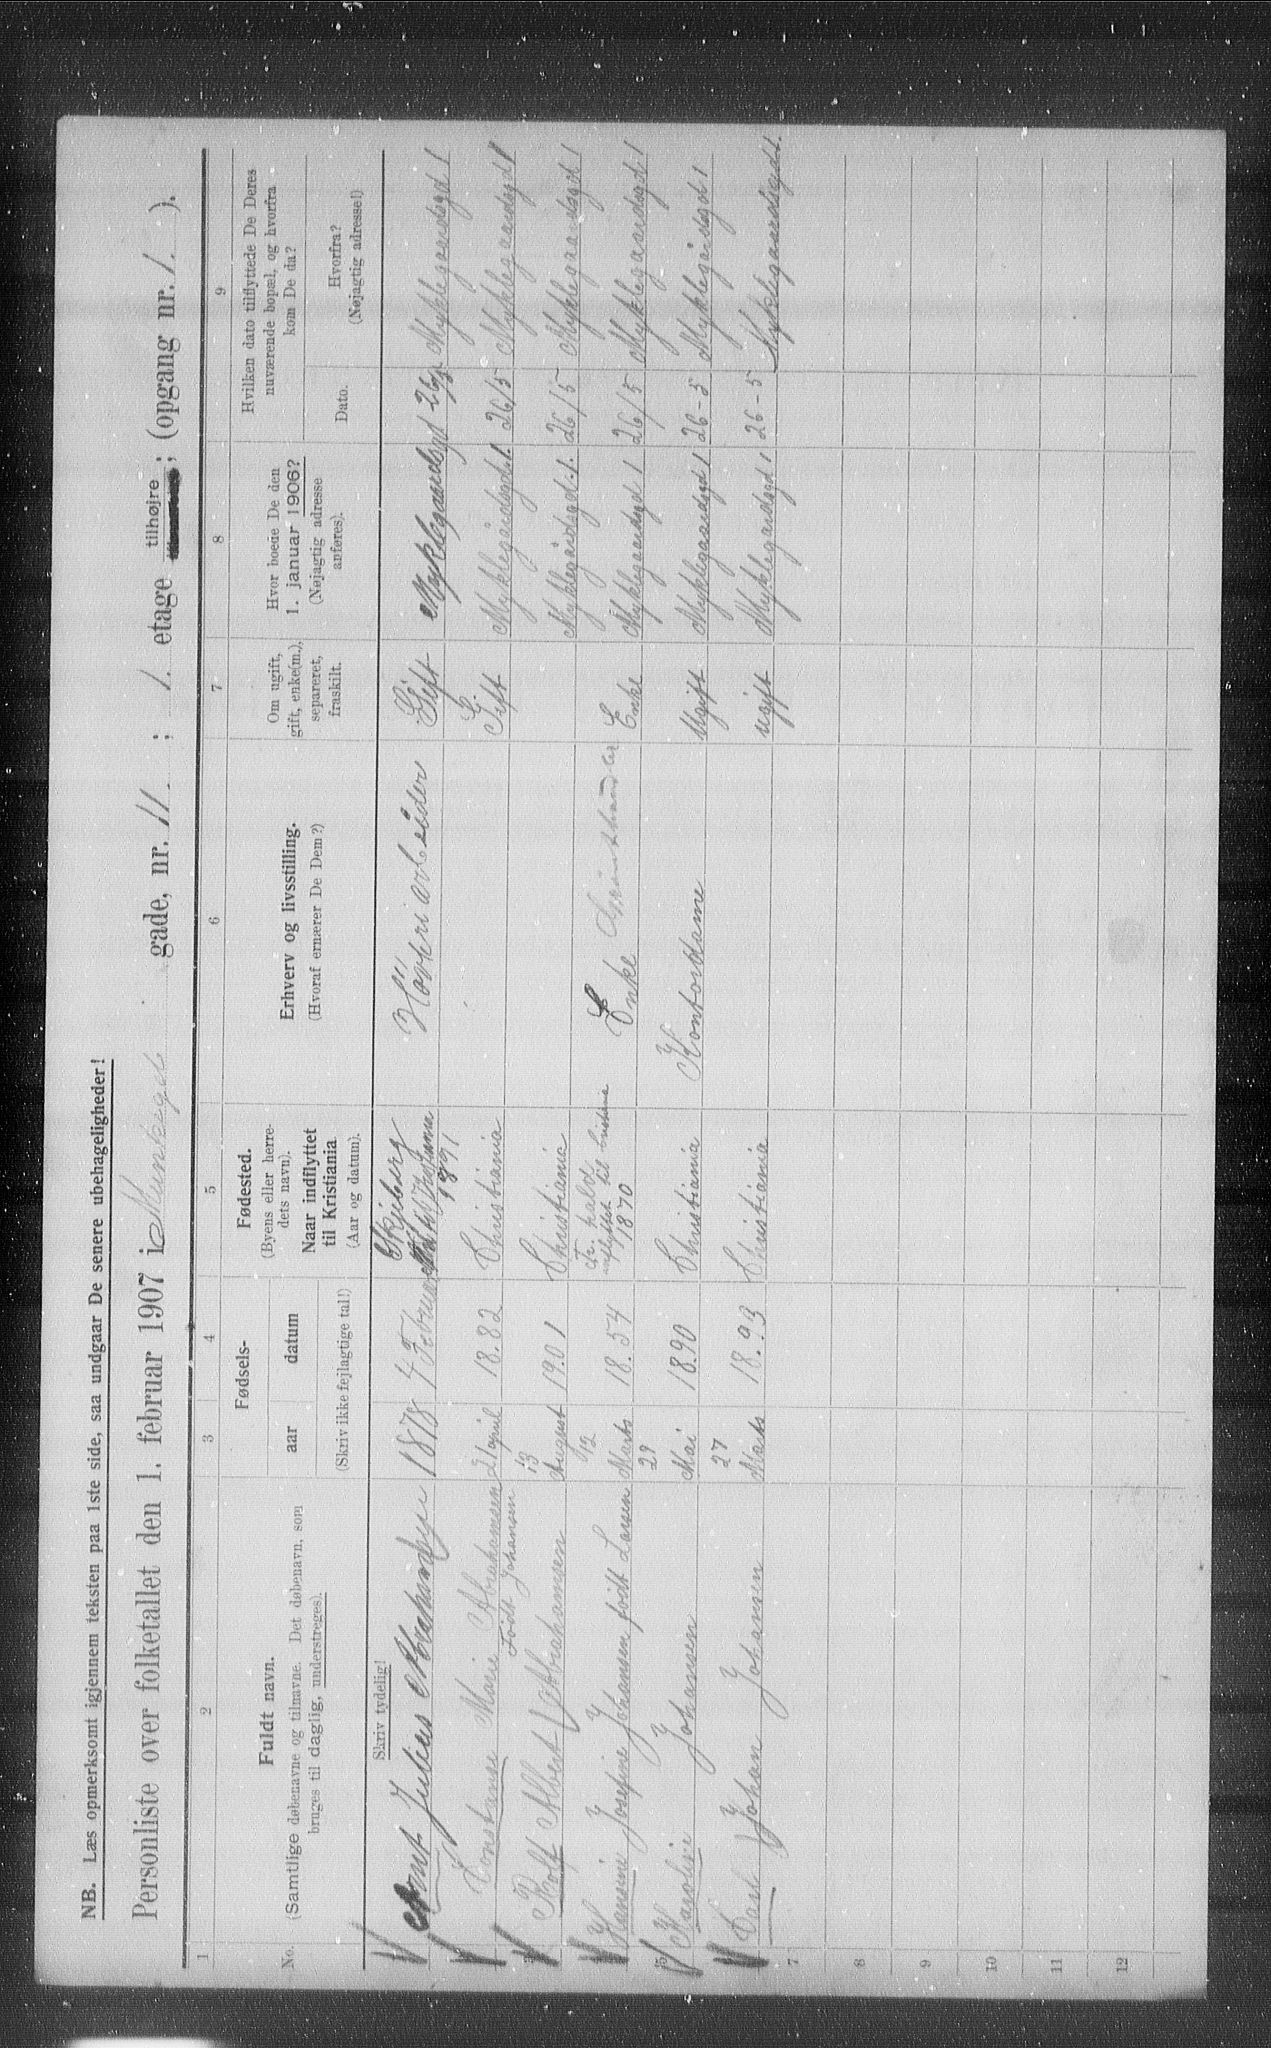 NB. Læs opmerksomt igjennem teksten paa 1ste side, saa undgaar De senere ubehageligheder!
Personliste over folketallet den 1. februar 1907 i Munkegd gade, nr. 11 ; 1. etage tilhøjre ; (opgang nr. 1. ).
1 2 3 4 5 6 7 8 9
No.
Fuldt navn.
(Samtlige døbenavne og tilnavne. Det døbenavn, som
bruges til daglig, understreges).
Fødsels-
aar datum
(Skriv ikke fejlagtige tal!)
Fødested.
(Byens eller herre-
dets navn).
Naar indflyttet
til Kristiania
(Aar og datum).
Erhverv og livsstilling.
(Hvoraf ernærer De Dem?)
Om ugift,
gift, enke(m.),
separeret,
fraskilt.
Hvor boede De den
1. januar 1906?
(Nøjagtig adresse
anføres).
Hvilken dato tilflyttede De Deres
nuværende bopæl, og hvorfra
kom De da?
Dato.
Hvorfra?
(Nøjagtig adresse!)
Skriv tydelig!
Julius 1878 4 Februar Skjeberg 1891 Gift Myklegaardsgd 26/5 Myklegaardsgd 1
Konstanse Marie Abrahamsen Født Johansen 21 april 18.82 Christiania Gift Myklegårdsgd 1. 26/5 Myklegaardsgd 1
3 Rolf Albert Abrahamsen 13 August 19.01 Christiania Myklegårdsgd 1. 26/5 Myklegaardsgd 1
Hansine Josefine Johansen født Larsen 12 Marts 18.54 Fr.hald indflyttet til Cristiania 1870 Enke Enke Myklegaardsgd 1 26/5 Myklegaardsgd 1
5 Karoline Johansen 29 Mai 18.90 Christiania Kontordame Ugift Myklegaardsgd 1 26-5 Myklegårdsgd 1
Carl Johan Johansen 27 Marts 18.93 Christiania ugift Myklegardsgd 1 26-5 Myklegaardsgd 1.
7
8
9
10
11
12